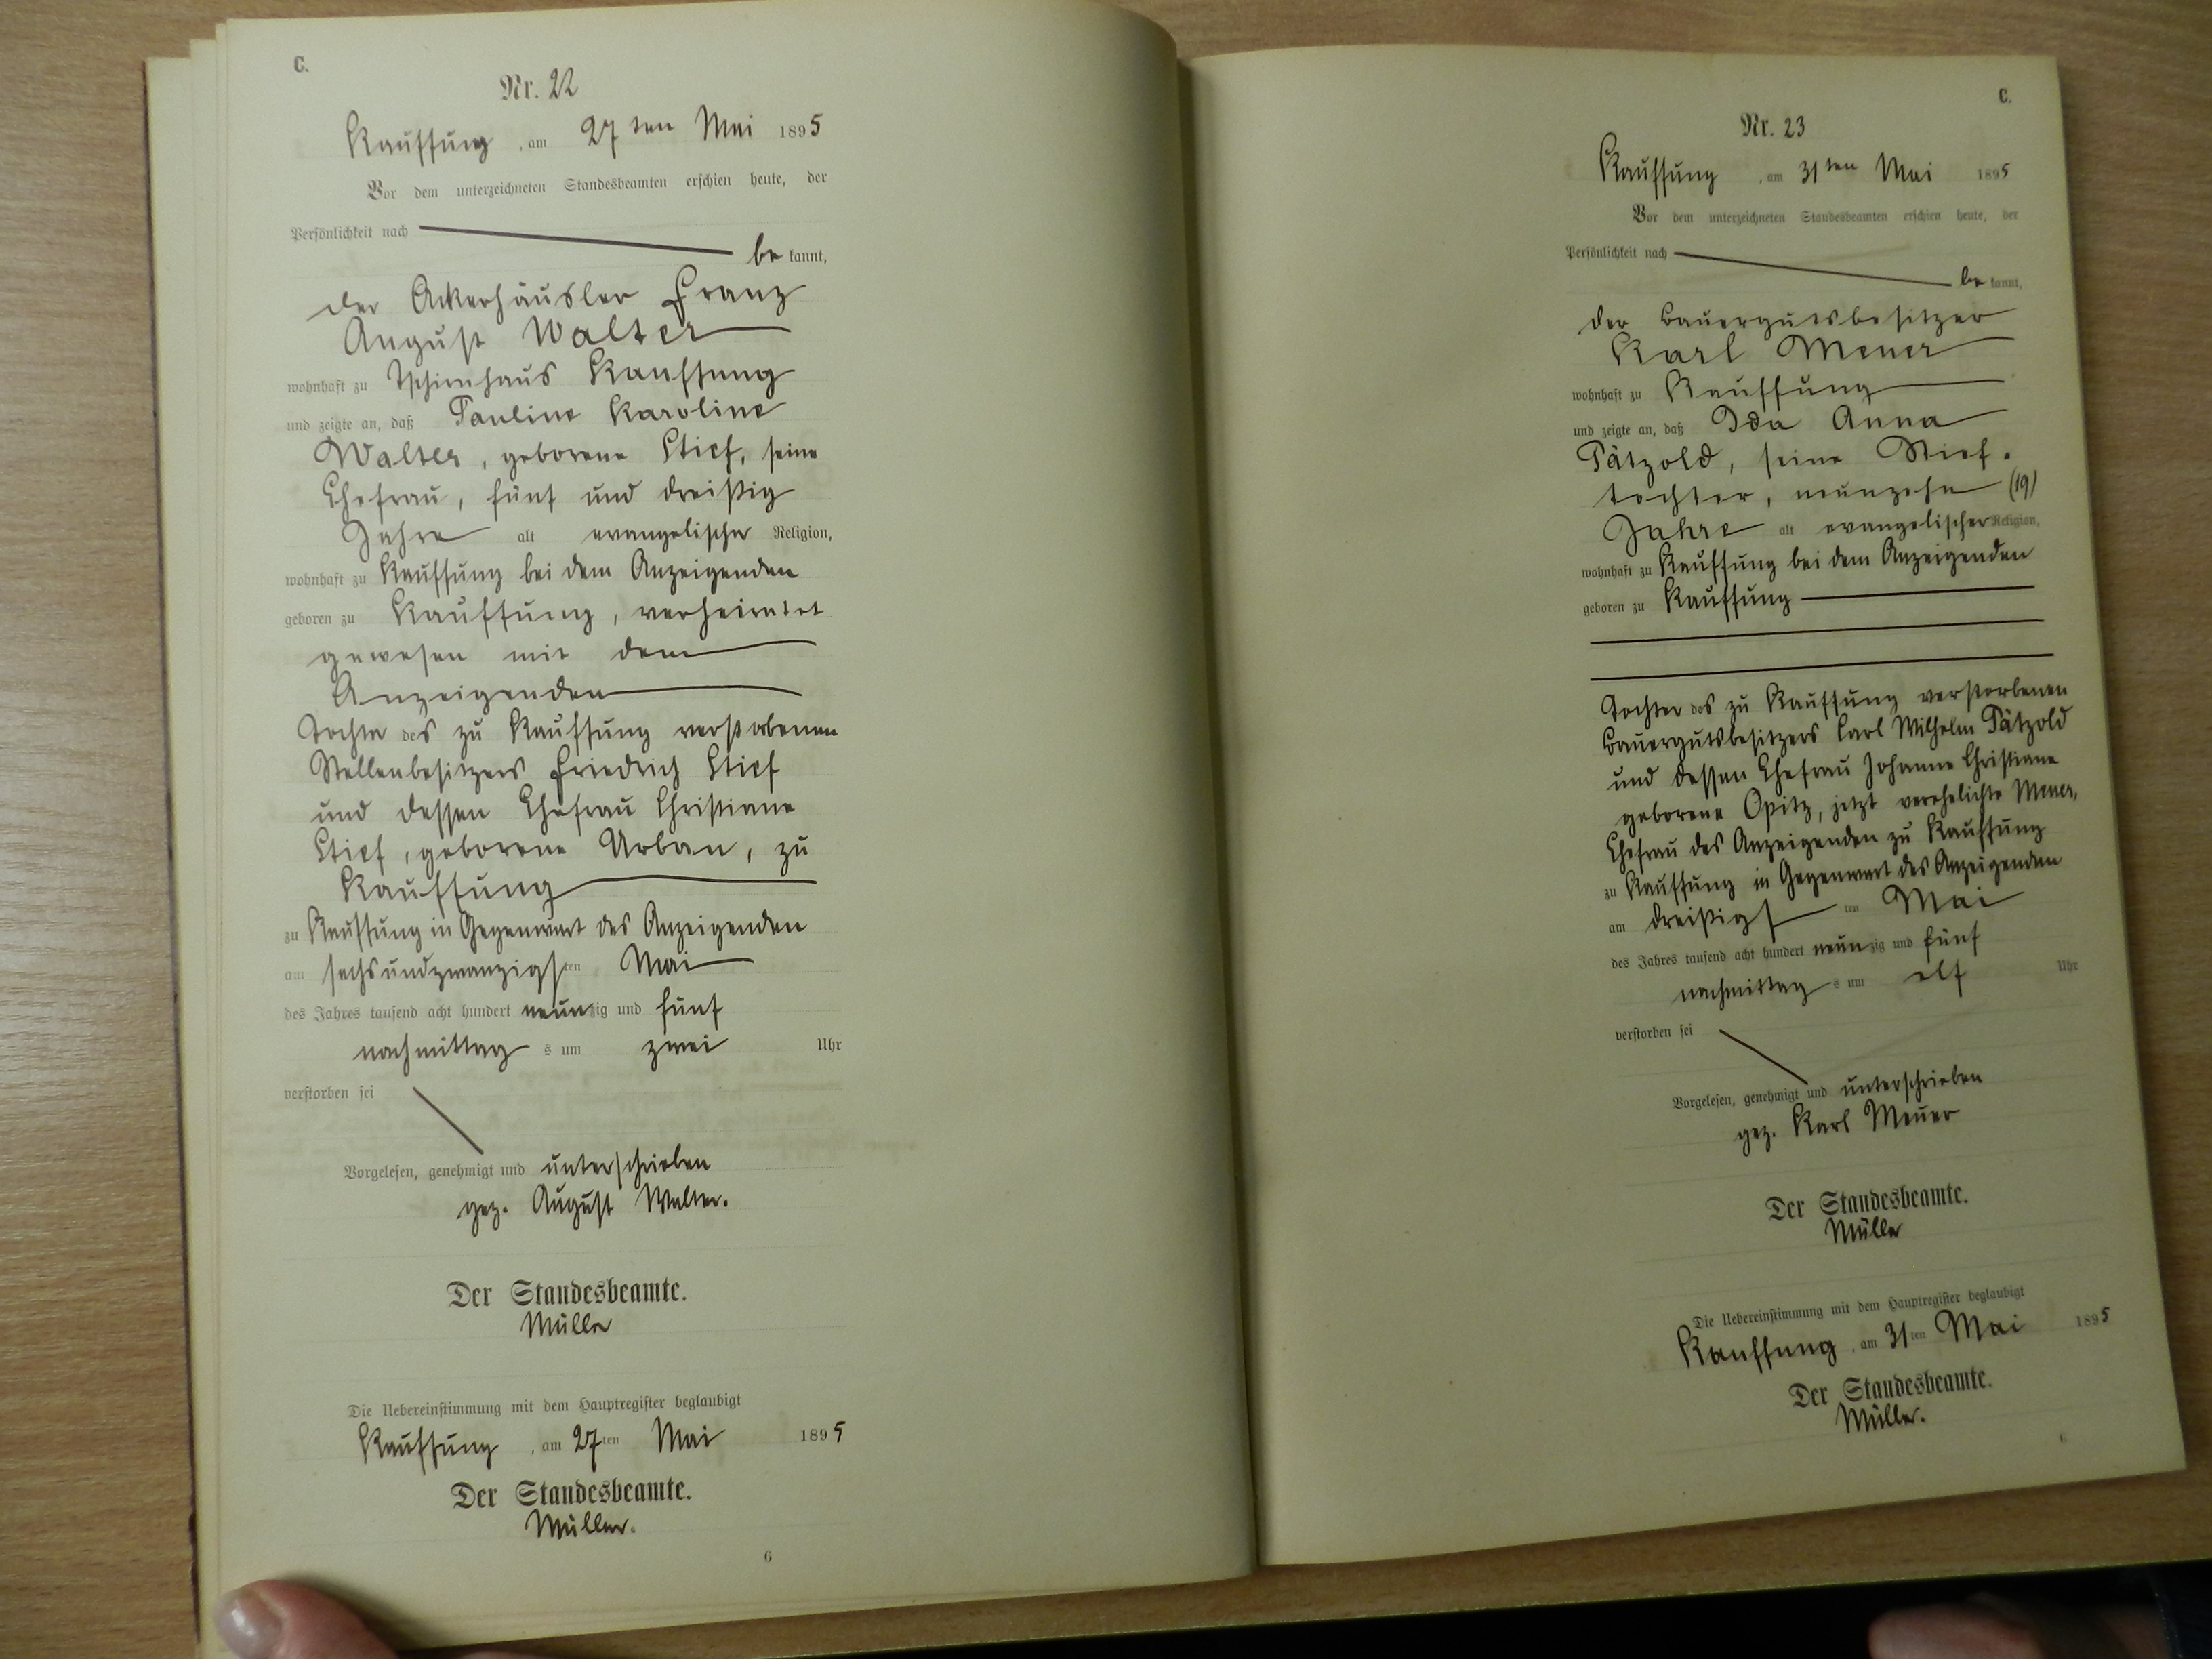 C.
Nr. 22
Kauffung, am 27ten Mai 1895
Vor dem unterzeichneten Standesbeamten erschien heute, der
Persönlichkeit nach
be kannt,
der Ackerhäusler Franz
August Walter
wohnhaft zu Tschirnhaus Kauffung
und zeigte an, daß Pauline Karoline
Walter, geborene Stief, seine
Ehefrau, fünf und dreißig
Jahre alt evangelischer Religion,
wohnhaft zu Kauffung bei dem Anzeigenden
geboren zu Kauffung, verheiratet
gewesen mit dem
Anzeigenden
Tochter des zu Kauffung verstorbenen
Stellenbesitzers Friedrich Stief
und dessen Ehefrau Christiane
Stief, geborene Urban, zu
Kauffung
zu Kauffung in Gegenwart des Anzeigenden
am sechsundzwanzigsten Mai
des Jahres tausend acht hundert neunzig und fünf
nachmittags um zwei Uhr
verstorben sei
Vorgelesen, genehmigt und unterschrieben
gez. August Walter.
Der Standesbeamte.
Müller
Die Uebereinstimmung mit dem Hauptregister beglaubigt
Kauffung, am 27ten Mai 1895
Der Standesbeamte.
Müller.
6
C.
Nr. 23
Kauffung, am 31ten Mai 1895
Vor dem unterzeichneten Standesbeamten erschien heute, der
Persönlichkeit nach
be kannt,
der Bauergutsbesitzer
Karl Meuer
wohnhaft zu Kauffung
und zeigte an, daß Ida Anna
Pätzold, seine Stief-
tochter, neunzehn (19)
Jahre alt evangelischer Religion,
wohnhaft zu Kauffung bei dem Anzeigenden
geboren zu Kauffung
Tochter des zu Kauffung verstorbenen
Bauergutsbesitzers Carl Wilhelm Pätzold
und dessen Ehefrau Johanne Christiane
geborene Opitz, jetzt verehelichte Meuer,
Ehefrau des Anzeigenden zu Kauffung
zu Kauffung in Gegenwart des Anzeigenden
am dreißigsten Mai
des Jahres tausend acht hundert neunzig und fünf
nachmittags um elf Uhr
verstorben sei
Vorgelesen, genehmigt und unterschrieben
gez. Karl Meuer
Der Standesbeamte.
Müller
Die Uebereinstimmung mit dem Hauptregister beglaubigt
Kauffung, am 31ten Mai 1895
Der Standesbeamte.
Müller.
6